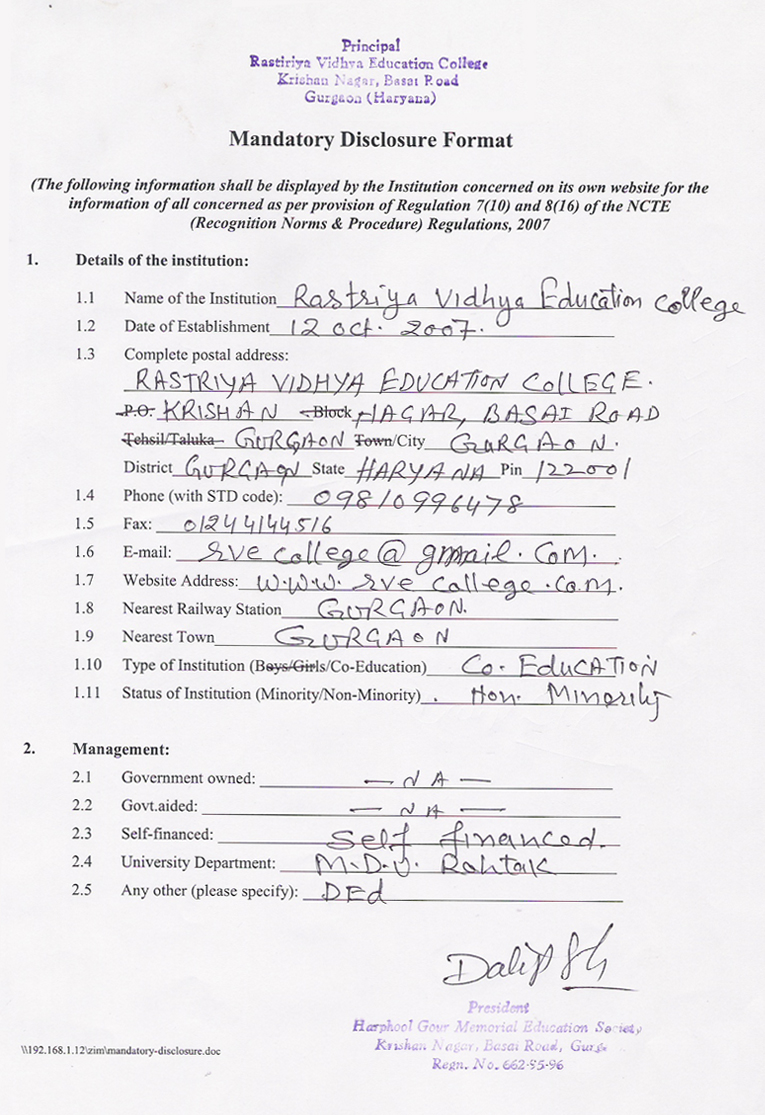 Principal
Rastiriya Vidhva Education College
Krishan Nagar, Basai Road
Gurgaon (Haryana)
Mandatory Disclosure Format
(The following information shall be displayed by the Institution concerned on its own website for the
information of all concerned as per provision of Regulation 7(10) and 8(16) of the NCTE
(Recognition Norms & Procedure) Regulations, 2007
1. Details of the institution:
1.1 Name of the Institution Rastriya Vidhya Education College
1.2 Date of Establishment 12 Oct. 2007.
1.3 Complete postal address:
RASTRIYA VIDHYA EDUCATION COLLEGE.
P.O. KRISHAN Block NAGAR, BASAI ROAD
Tehsil/Taluka GURGAON Town/City GURGAON.
District GURGAON State HARYANA Pin 122001
1.4 Phone (with STD code): 09810996478
1.5 Fax: 01244144516
1.6 E-mail: rve college@gmail.com.
1.7 Website Address: W.W.W. rve college.com.
1.8 Nearest Railway Station GURGAON.
1.9 Nearest Town GURGAON
1.10 Type of Institution (Boys/Girls/Co-Education) Co-EDUCATION
1.11 Status of Institution (Minority/Non-Minority) . Non. Minority
2. Management:
2.1 Government owned: — N A —
2.2 Govt.aided: — N A —
2.3 Self-financed: Self financed.
2.4 University Department: M.D.U. Rohtak
2.5 Any other (please specify): DEd
Dalip
President
Harphool Gour Memorial Education Society
Krishan Nagar, Basai Road, Gurg
Regn. No. 662-95-96
\\192.168.1.12\zim\mandatory-disclosure.doc